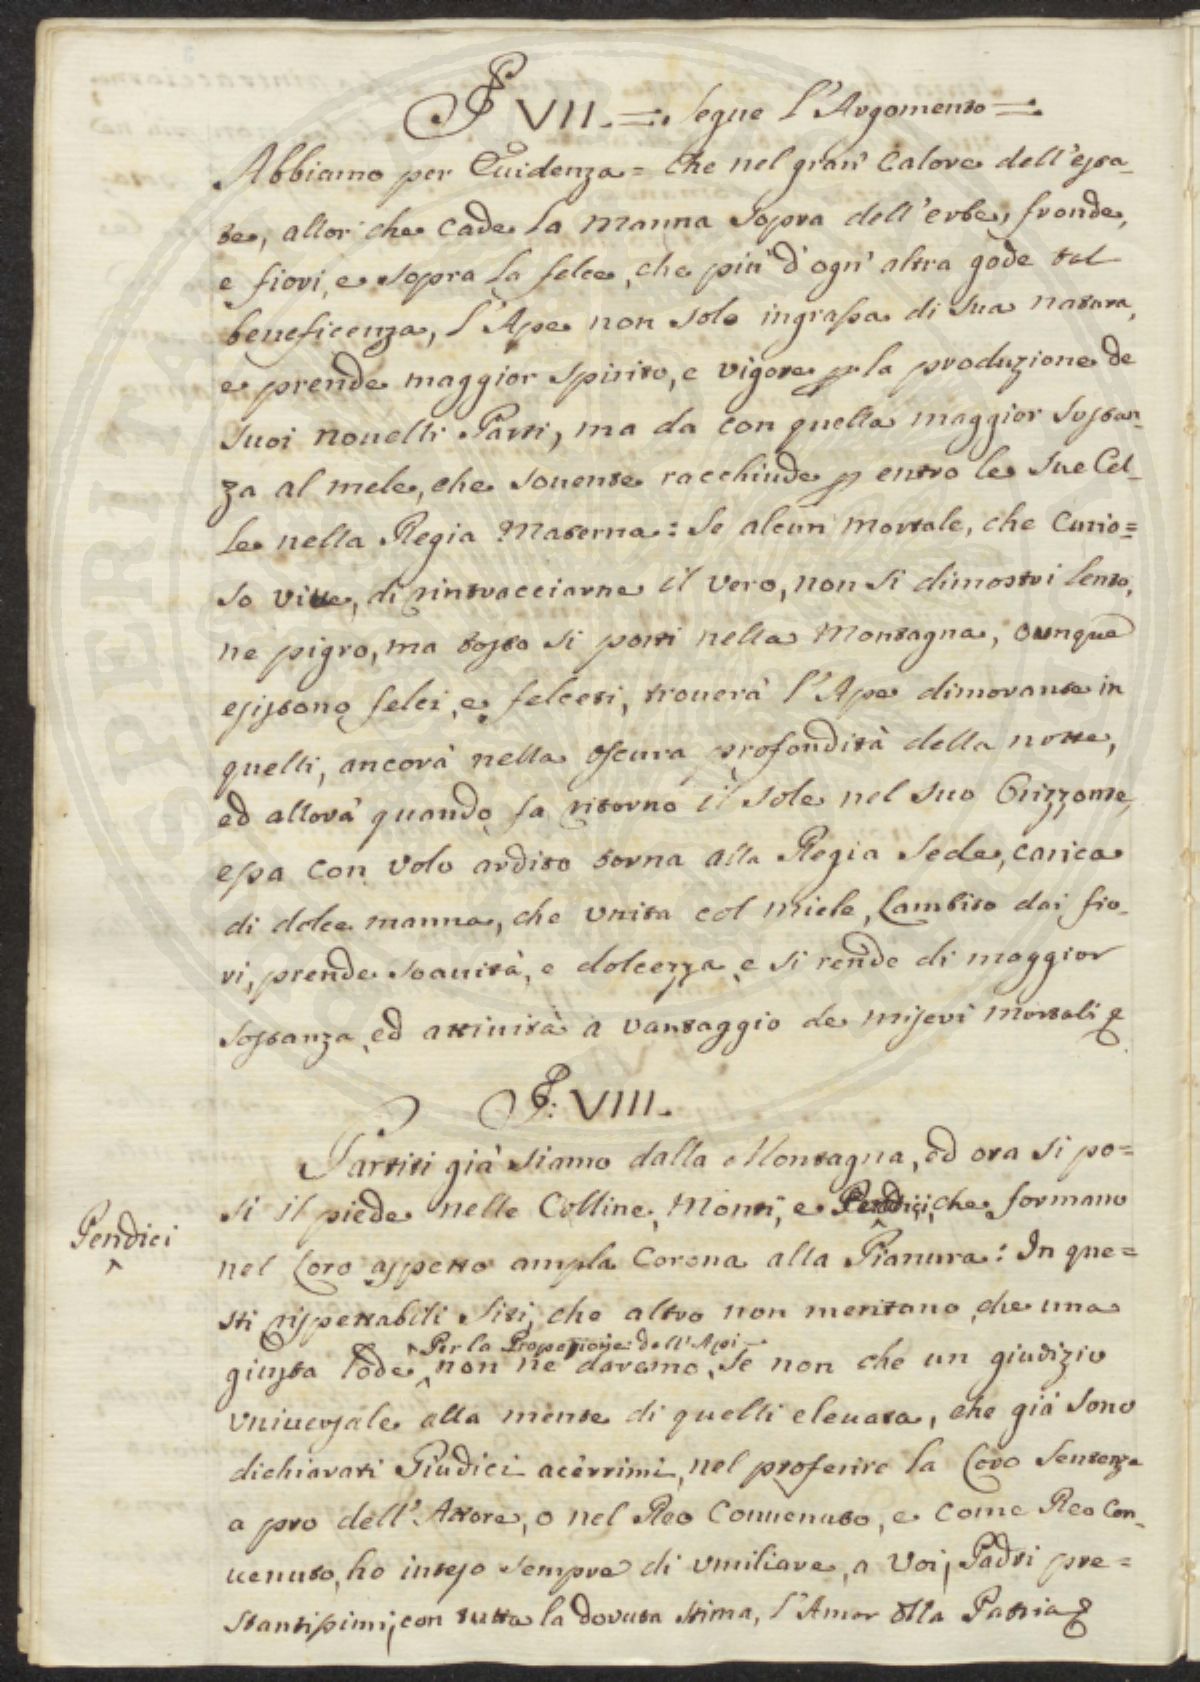 § VII. = Segue l'Argomento =
Abbiamo per Euidenza = che nel gran' Calore dell'esta-
te, allor' che cade la manna sopra dell'erbe, fronde,
e fiori, e sopra la felce, che piu' d'ogn' altra gode tal
beneficenza, l'Ape non solo ingrassa di sua natura,
e prende maggior spirito, e vigore per la produzione de
suoi nouelli Parti, ma da con quella maggior sostan-
za al mele, che souente racchiude per entro le sue Cel-
le nella Regia Materna: Se alcun mortale, che Curio=
so viue, di rintracciarne il vero, non si dimostri lento,
ne pigro, ma tosto si porti nella Montagna, ounque
esistono felci, e felceti, trouerà l'Ape dimorante in
quelli, ancorà nella oscura profondità della notte,
ed allorà quando fa ritorno il sole nel suo Orizzonte,
essa con volo ardito torna alla Regia Sede, carica
di dolce manna, che vnita col miele, lambito dai fio-
ri, prende soauità, e dolcezza, e si rende di maggior
sostanza, ed attiuità a vantaggio de miseri mortali
§: VIII.
Partiti già siamo dalla Montagna, ed ora si po=
si il piede nelle Colline, Monti, e Pendici, che formano
Pendici
nel loro aspetto ampla Corona alla Pianura: In que=
sti rispettabili siti, che altro non meritano, che una
Per la Propagazione dell'Api
giusta lode, non ne daremo, se non che un giudizio
vniuersale alla mente di quelli eleuata, che già sono
dichiarati Giudici acèrrimi, nel proferire la loro sentenza
a pro dell'Attore, o nel Reo Conuenuto, e come Reo Con-
uenuto, ho inteso sempre di vmiliare, a Voi, Padri pre=
stantissimi, con tutta la dovuta stima, l'Amor alla Patria